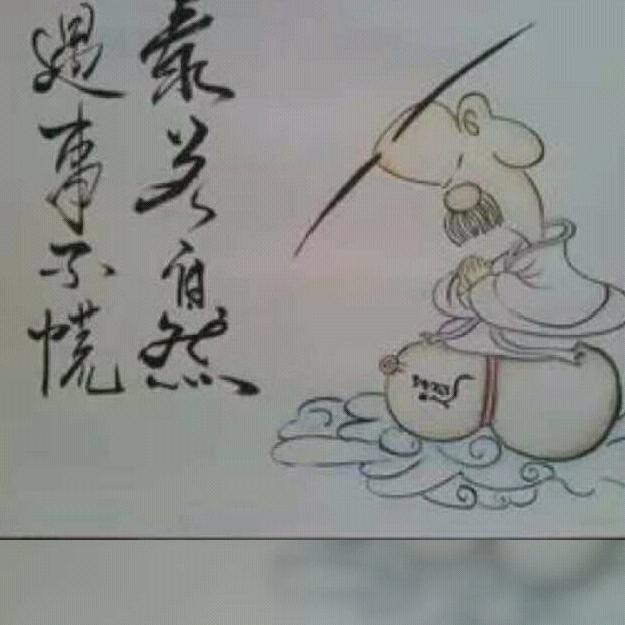 泰若自然
遇事不慌